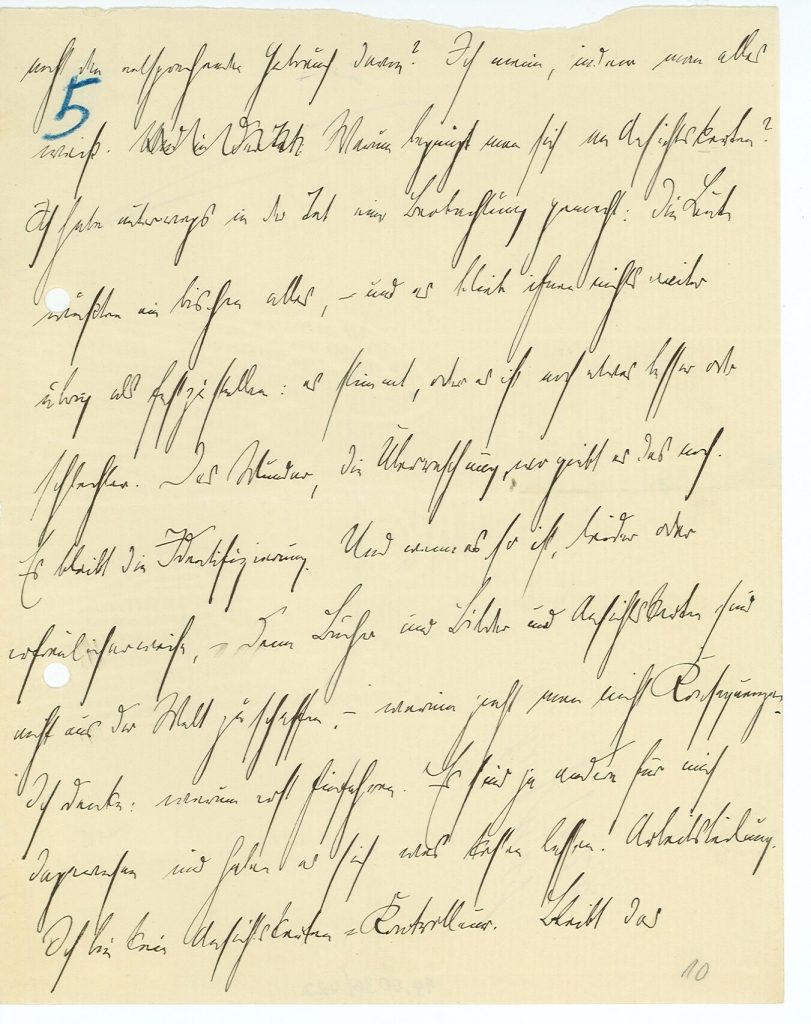 nicht den entsprechenden Gebrauch davon? Ich meine, indem man alles
5
weiß. Warum begnügt man sich an Ansichtskarten?
Ich habe unterwegs in der Tat eine Beobachtung gemacht: die Leute
wußten ein bischen alles, – und es blieb ihnen nichts weiter
übrig als festzustellen: es stimmt, oder es ist noch etwas besser oder
schlechter. Das Wunder, die Überraschung, wo giebt es das noch.
Es bleibt die Identifizierung. Und wenn es so ist, leider oder
erfreulicherweise, – denn Bücher und Bilder und Ansichtskarten sind
nicht aus der Welt zu schaffen, – warum zieht man nicht Konsequenzen.
Ich denke: warum erst hinfahren. Es sind ja andere für mich
dagewesen und haben es sich was kosten lassen. Arbeitsteilung.
Ich bin kein Ansichtskarten=Kontrolleur. Bleibt das
10